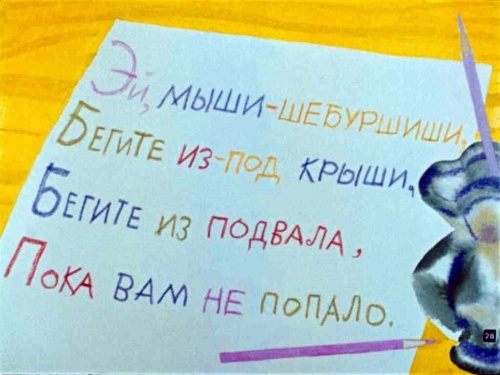 Эй, МЫШИ-ШЕБУРШИШИ,
БЕГИТЕ ИЗ-ПОД КРЫШИ,
БЕГИТЕ ИЗ ПОДВАЛА,
ПОКА ВАМ НЕ ПОПАЛО.
28